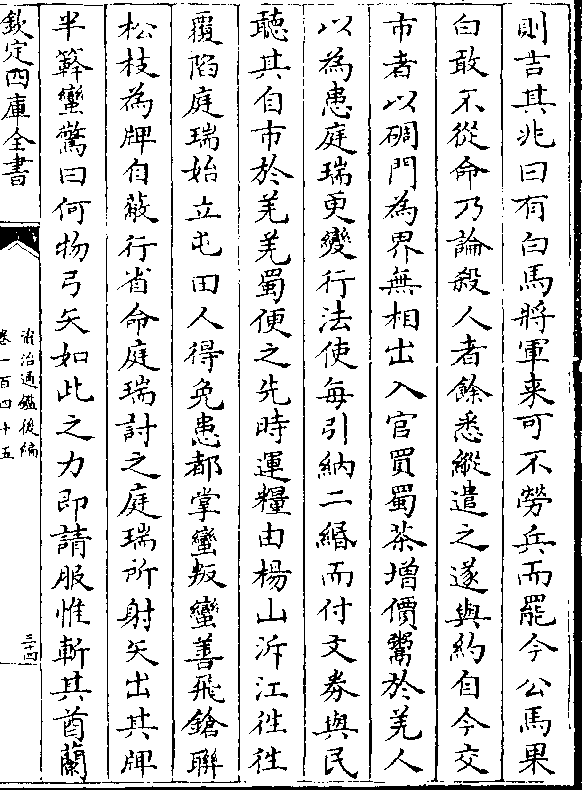 則吉其兆曰有白馬將軍来可不勞兵而罷今公馬果
白敢不從命乃論殺人者餘悉縱遣之遂與約自今交
市者以碉門為界無相出入官買蜀茶增價鬻於羌人
以為患庭瑞更變行法使每引納二緡而付文劵與民
聽其自市於羌羌蜀便之先時運糧由楊山泝江徃徃
覆陷庭瑞始立屯田人得免患都掌蠻叛蠻善飛鎗聯
松枝為牌自蔽行省命庭瑞討之庭瑞所射矢出其牌
半簳蠻驚曰何物弓矢如此之力即請服惟斬其酋蘭
欽定四庫全書
資治通鑑後編
卷一百四十五
三十四